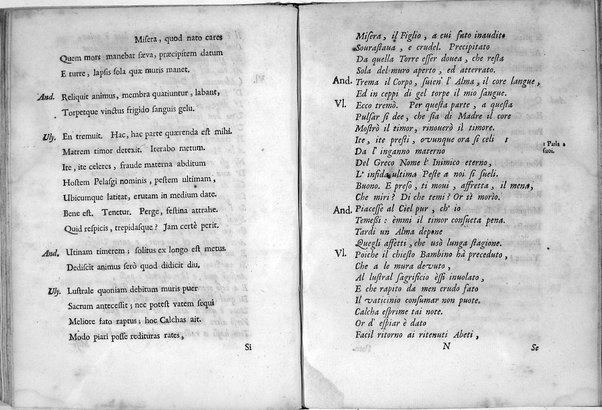 Miſera, quod nato cares
Quem mors manebat ſæva, præcipitem datum
E turre, lapſis ſola quæ muris manet.
And. Reliquit animus, membra quatiuntur, labant,
Torpetque vinctus frigido ſanguis gelu.
Ulyſ. En tremuit. Hac, hac parte quærenda eſt mihi.
Matrem timor detexit. Iterabo metum.
Ite, ite celeres, fraude materna abditum
Hoſtem Pelaſgi nominis, peſtem ultimam,
Ubicumque latitat, erutam in medium date.
Bene eſt. Tenetur. Perge, feſtina attrahe.
Quid reſpicis, trepidaſque? Jam certè perit.
And. Utinam timerem; ſolitus ex longo eſt metus.
Dediſcit animus ſerò quod didicit diu.
Ulyſ. Luſtrale quoniam debitum muris puer
Sacrum anteceſſit; nec poteſt vatem ſequi
Meliore fato raptus; hoc Calchas ait.
Modo piari poſſe redituras rates,
Si
Miſera, il Figlio, a cui fato inaudito
Souraſtava, e crudel. Precipitato
Da quella Torre eſſer douea, che reſta
Sola del muro aperto, ed atterrato.
And. Trema il Corpo, ſuien' l' Alma, il core langue,
Ed in ceppi di gel torpe il mio ſangue.
Vl. Ecco tremò. Per queſta parte, a queſta
Pulſar ſi dee, che ſia di Madre il core
Moſtrò il timor, rinouerò il timore.
Ite, ite preſti, ovunque ora ſi celi 1
1 Parla a
ſuoi.
Da l' inganno materno
Del Greco Nome l' Inimico eterno,
L' infida ultima Peſte a noi ſi ſueli.
Buono. E preſo, ti movi, affretta, il mena,
Che miri? Di che temi? Or ſì morìo.
And. Piaceſſe al Ciel pur, ch' io
Temeſſi: è mmi il timor conſueta pena.
Tardi un Alma depone
Quegli affetti, che usò lunga ſtagione.
Vl. Poiche il chieſto Bambino hà preceduto,
Che a le mura devuto,
Al luſtral ſagrificio èſſi involato,
E che rapito da men crudo fato
Il vaticinio conſumar non puote.
Calcha eſprime tai note.
Or d' eſpiar è dato
Facil ritorni ai ritenuti Abeti,
N
Se